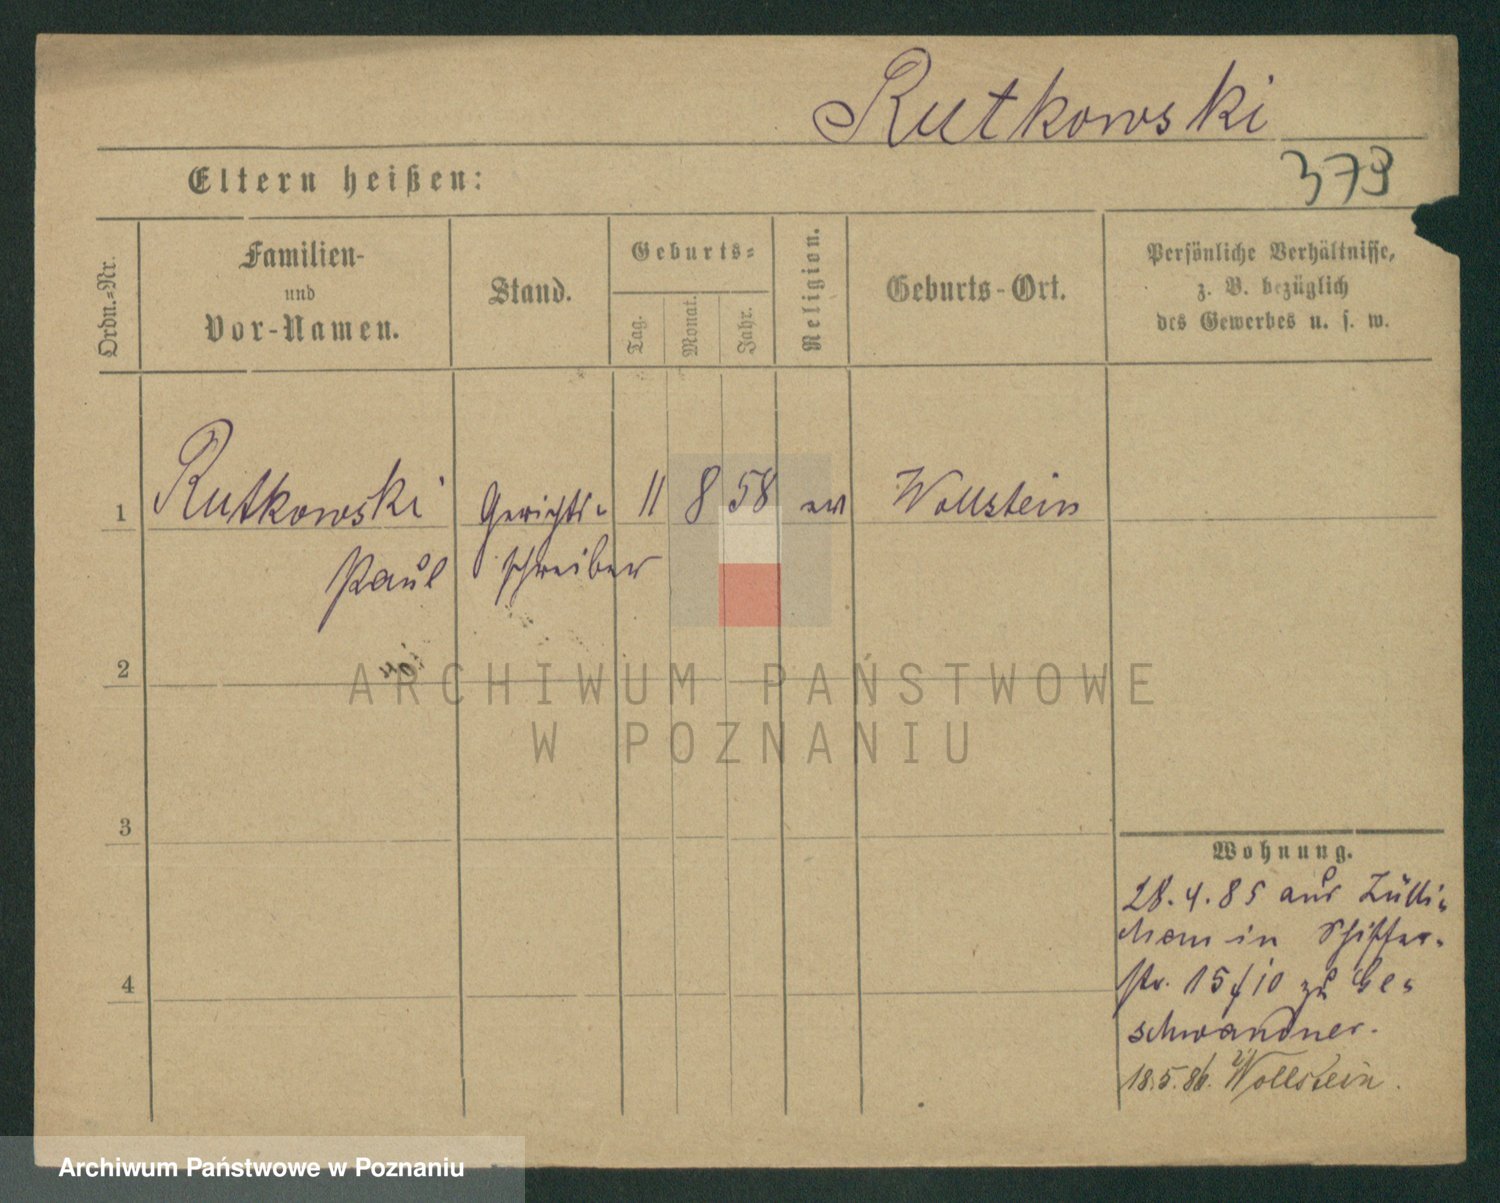 Rutkowski
379
Eltern heißen:
Ordn.=Nr.
Familien-
und
Vor-Namen.
Stand.
Geburts=
Tag.
Monat.
Jahr.
Religion.
Geburts-Ort.
Persönliche Verhältnisse,
z. B. bezüglich
des Gewerbes u. s. w.
1 Rutkowski Gerichts- 11 8 58 ev Wollstein
Paul schreiber
2
ARCHIWUM PAŃSTWOWE
W POZNANIU
3
Wohnung.
28.4.85 aus Zülli-
chau in Schiffer-
4
str. 15/10 zu Ge-
schwandner.
18.5.86. Wollstein.
Archiwum Państwowe w Poznaniu